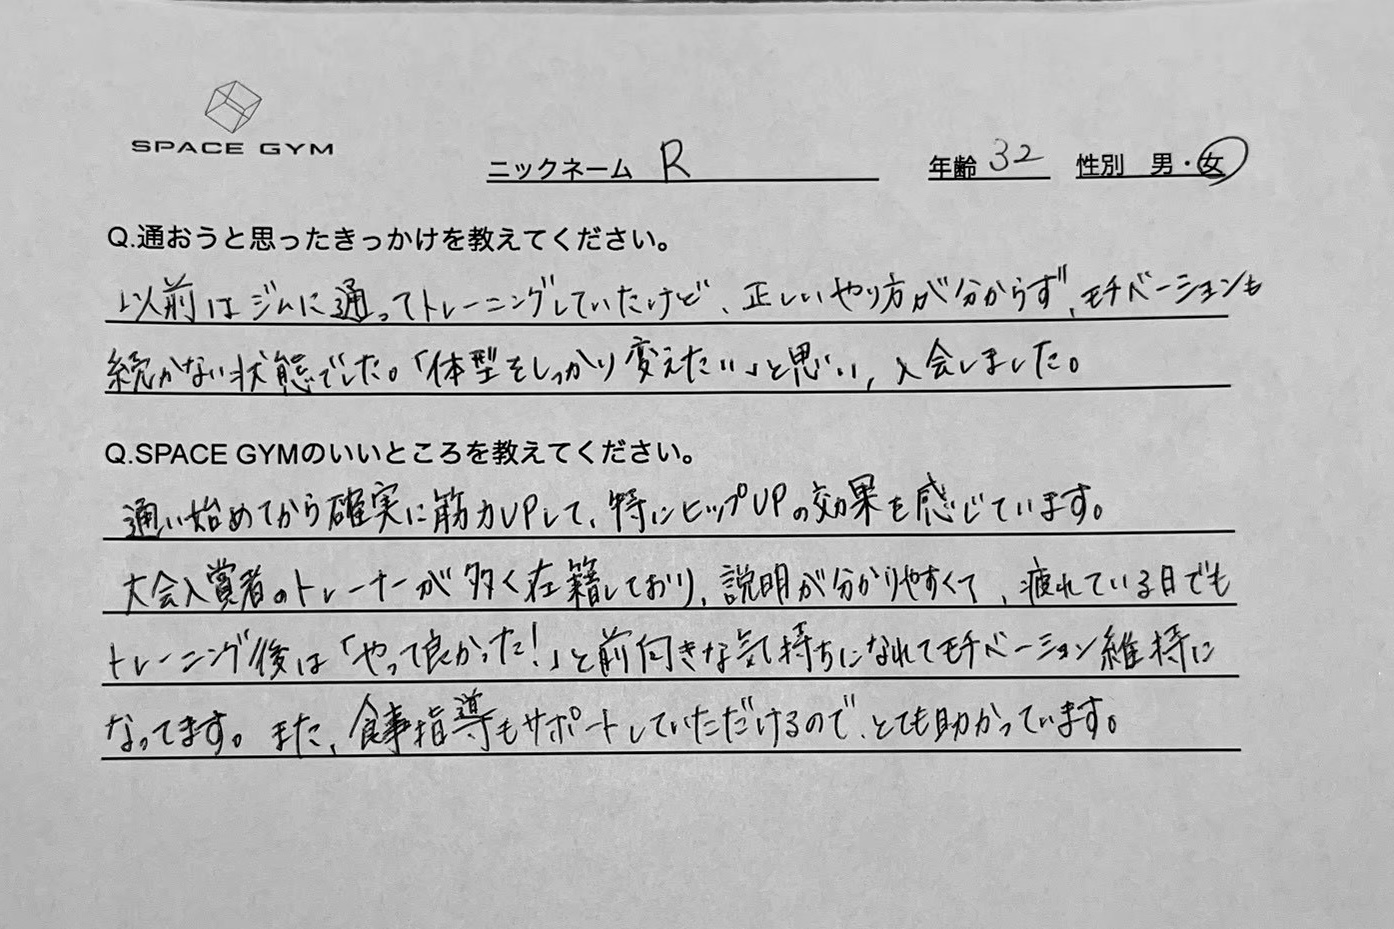 SPACE GYM
ニックネーム R 年齢 32 性別 男・女
Q.通おうと思ったきっかけを教えてください。
以前はジムに通ってトレーニングしていたけど、正しいやり方が分からず、モチベーションも
続かない状態でした。「体型をしっかり変えたい」と思い、入会しました。
Q.SPACE GYMのいいところを教えてください。
通い始めてから確実に筋力UPして、特にヒップUPの効果を感じています。
大会入賞者のトレーナーが多く在籍しており、説明が分かりやすくて、疲れている日でも
トレーニング後は「やって良かった!」と前向きな気持ちになれてモチベーション維持に
なってます。また、食事指導もサポートしていただけるので、とても助かっています。